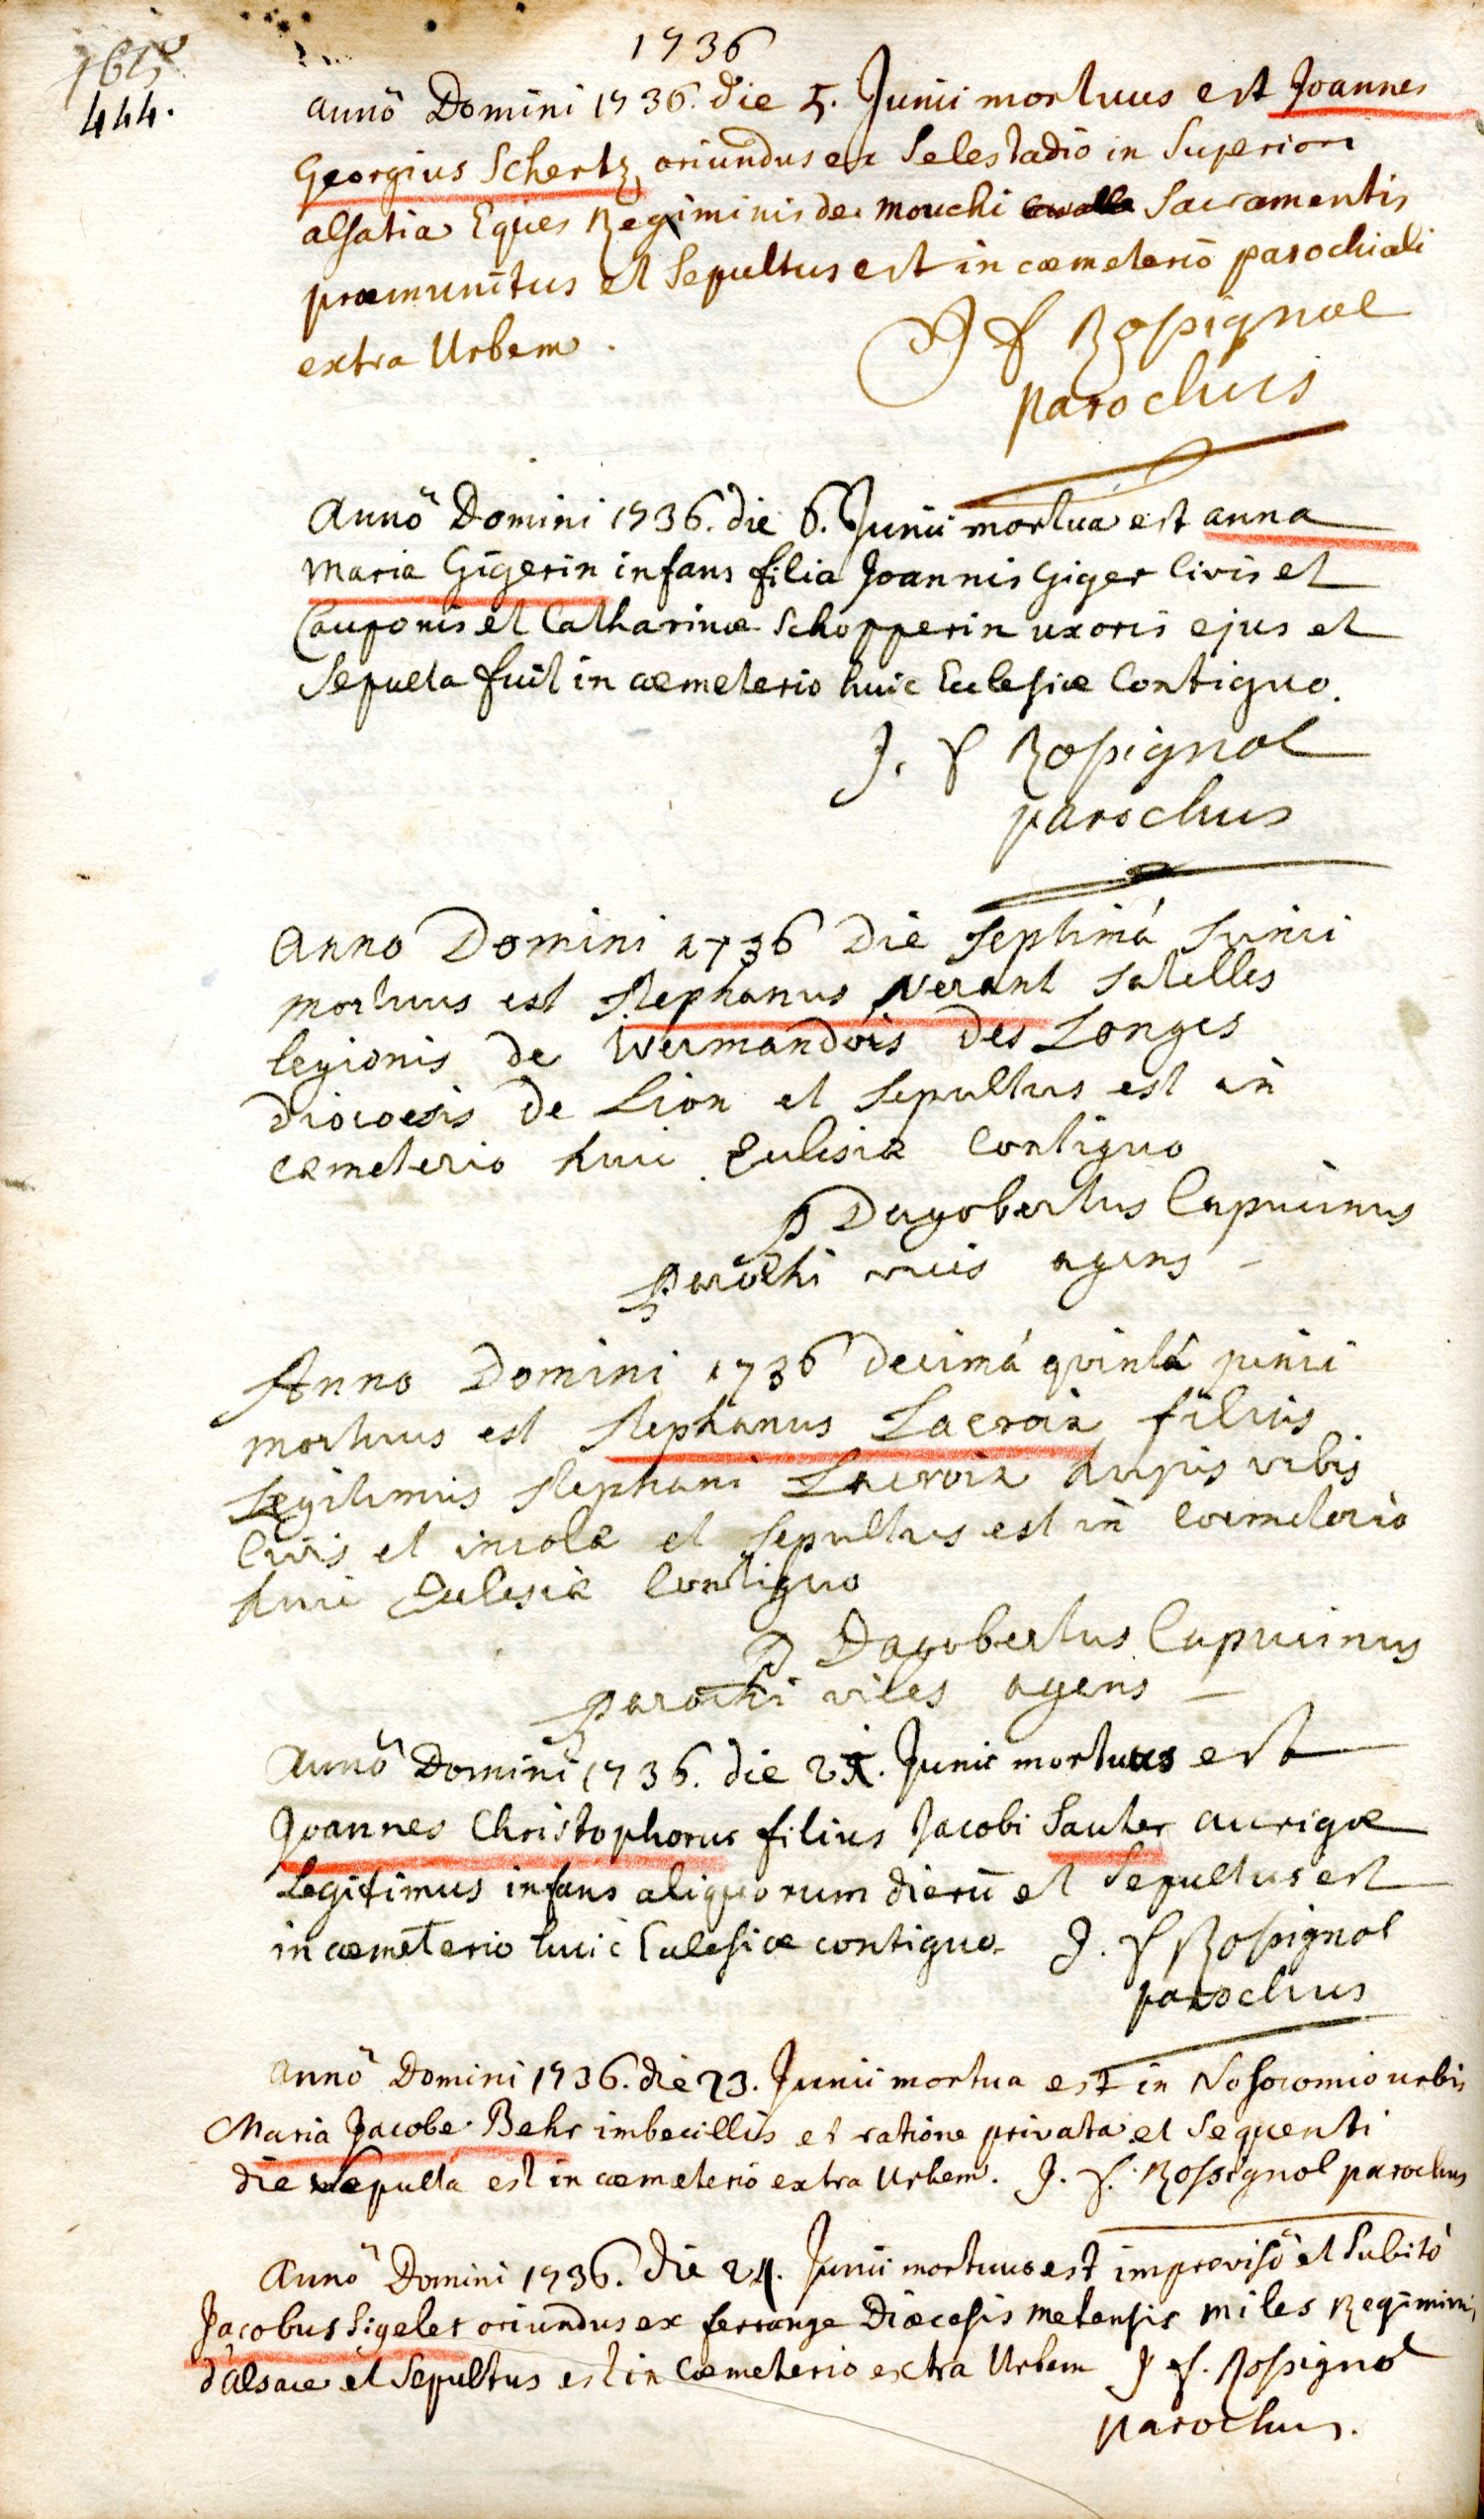 1736
444.
Annô Domini 1736. die 5. Junii mortuus est Joannes
Georgius Schertz, oriundus ex Selestadio in Superiori
alsatia Eques Regiminis de mouchi Sacramentis
præmunitus et Sepultus est in cœmeteriô parochiali
extra Urbem.
J f Rossignol
parochus
Annô Domini 1736. die 6. Junii mortua est anna
Maria Gigerin infans filia Joannis Giger Civis et
Cauponis et Catharinæ Schopperin uxoris ejus et
Sepulta fuit in cœmeterio huic Ecclesiæ Contiguo.
J. f Rossignol
parochus
Anno Domini 1736 Die Septimá Junii
mortuus est Stephanus Verant Satelles
legionis de Wermandois des Longes
diocoesis de Lion et Sepultus est in
cæmeterio huic Eclisiæ Contiguo
p Dagobertus Capucinus
parochi vices agens
Anno Domini 1736 decimá quintá junii
mortuus est Stephanus Lacroix filius
Legitimus Stephani Lacroix hujus urbis
Civis et incolæ et Sepultus est in Cœmeterio
huic Eclesiæ Contiguo
p Dagobertus Capucinus
parochi vices agens
Annô Domini 1736. die 21. Junii mortuus est
Joannes Christophorus filius Jacobi Sauter aurigæ
Legitimus infans aliquorum dierū et Sepultus est
in cœmeterio huic Ecclesiæ contiguo. J. f Rossignol
parochus
Annô Domini 1736. die 23. Junii mortua est in Nosocomio urbis
Maria Jacobe Behr imbecillis et ratione privata et Sequenti
die Sepulta est in cœmeterio extra Urbem. J. f. Rossignol parochus
Annô Domini 1736. die 24. Junii mortuus est improvisô et Subitò
Jacobus Sigeler oriundus ex ferrange Diœcesis metensis miles Regiminis
d'alsace et Sepultus est in Cœmeterio extra Urbem J f. Rossignol
parochus.